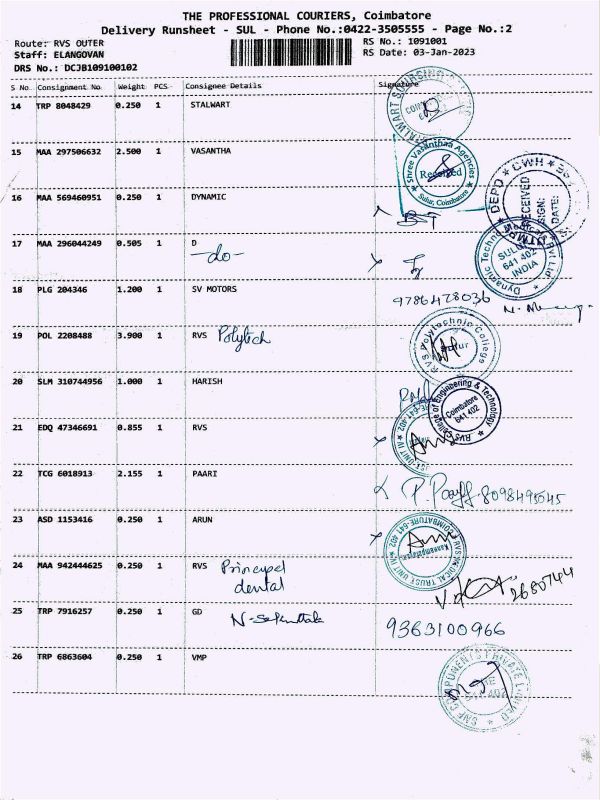 THE PROFESSIONAL COURIERS, Coimbatore
Delivery Runsheet - SUL - Phone No.:0422-3505555 - Page No.:2
Route: RVS OUTER
RS No.: 1091001
Staff: ELANGOVAN
RS Date: 03-Jan-2023
DRS No.: DCJB109100102
S No Consignment No Weight PCS Consignee Details Signature
14 TRP 8048429 0.250 1 STALWART
15 MAA 297506632 2.500 1 VASANTHA
Shree Vasanthaa Agencies
Received
Sulur, Coimbatore
16 MAA 569460951 0.250 1 DYNAMIC
DEPD CWH
RECEIVED
SIGN:
DATE:
17 MAA 296044249 0.505 1 D
-do-
SULUR
641 402
INDIA
18 PLG 204346 1.200 1 SV MOTORS
9786478036
19 POL 2208488 3.900 1 RVS Polytech
RVS Polytechnic College
Sulur
20 SLM 310744956 1.000 1 HARISH
RVS College of Engineering & Technology
Coimbatore
641 402
21 EDQ 47346691 0.855 1 RVS
22 TCG 6018913 2.155 1 PAARI
8098495545
23 ASD 1153416 0.250 1 ARUN
COIMBATORE-641 402
24 MAA 942444625 0.250 1 RVS Principal
dental
2680744
25 TRP 7916257 0.250 1 GD
9363100966
26 TRP 6863604 0.250 1 VMP